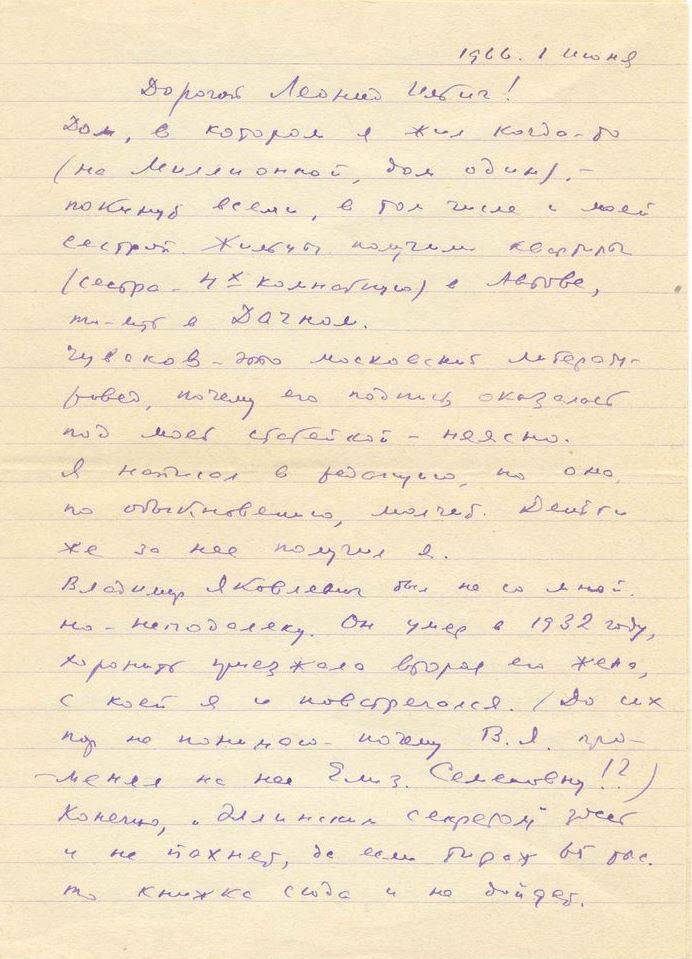 1966. 1 июня
Дорогой Леонид Ильич!
Дом, в котором я жил когда-то
(на Миллионной, дом один), –
покинут всеми, в том числе и моей
сестрой. Жильцы получили квартиры
(сестра – 4х комнатную) в Автове,
в Дачном.
Чуваков – это московский литерату-
ровед, почему его подпись оказалась
под моей статейкой – неясно.
Я написал в редакцию, но она,
по обыкновению, молчит. Деньги
же за нее получил я.
Владимир Яковлевич был не со мной,
но – неподалеку. Он умер в 1932 году,
хоронить приезжала вторая его жена,
с коей я и повстречался. (До сих
пор не понимаю – почему В.Я. про-
менял на нее Елиз. Семеновну!?)
Конечно, "эллинским секретом" здесь
и не пахнет, да если тираж 65 тыс.
то книжка сюда и не дойдет.